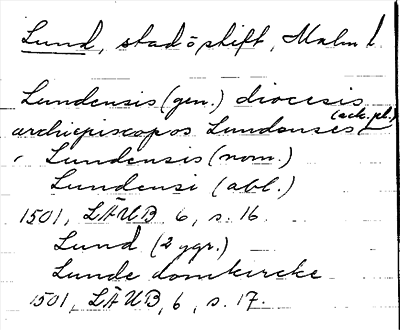 Lund, stad o stift, Malm l.
Lundensis (gen.) diocesis
(ack. pl.)
archiepiscopos Lundenses
Lundensis (nom.)
Lundensi (abl.)
1501, LÄUB 6, s. 16.
Lund (2 ggr.)
Lunde domkircke
1501, LÄUB, 6, s. 17.